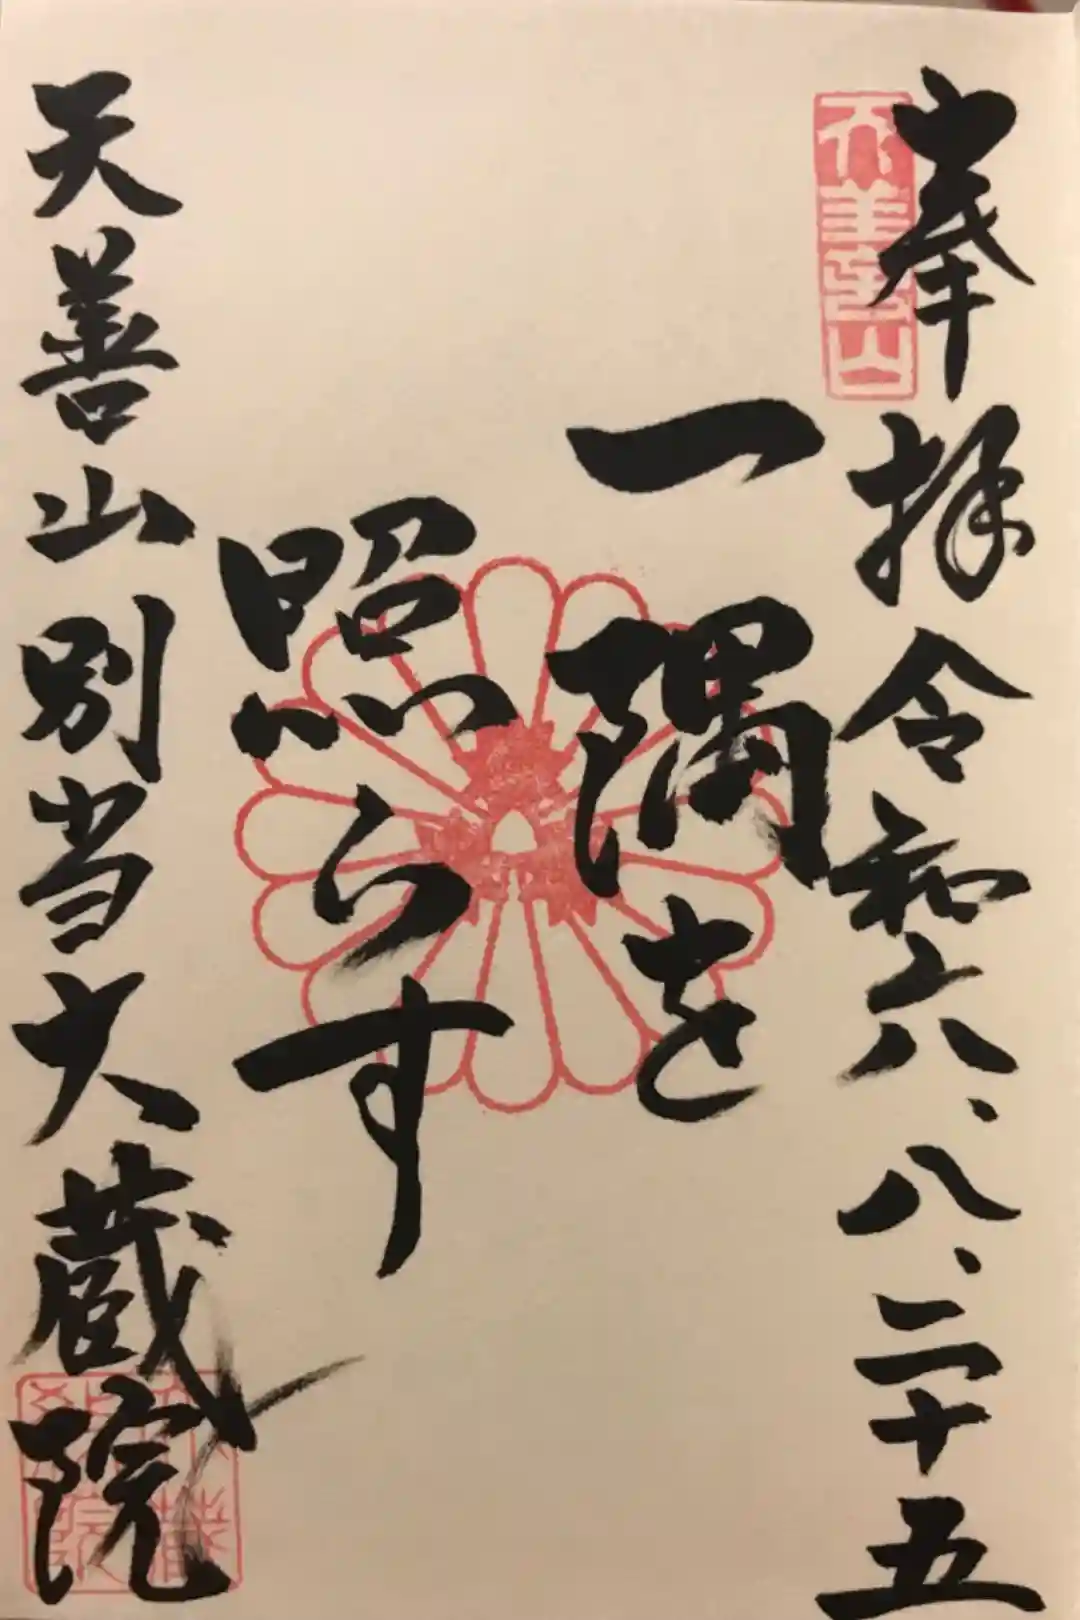 奉拝 令和六、八、二十五
天善山
一隅を
照らす
天善山別当大蔵院